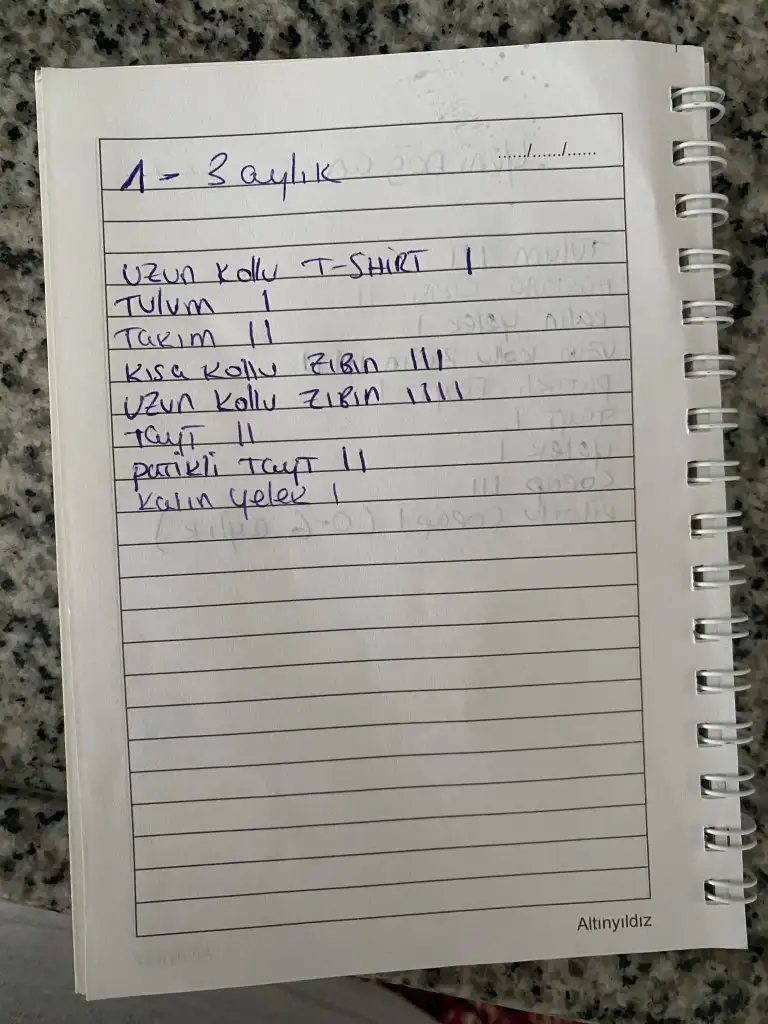 1 - 3 aylık
....../....../......
Uzun kollu T-SHİRT I
Tulum I
Takım II
Kısa kollu zıbın III
Uzun kollu zıbın IIII
Tayt II
patikli Tayt II
kalın yelek I
Altınyıldız